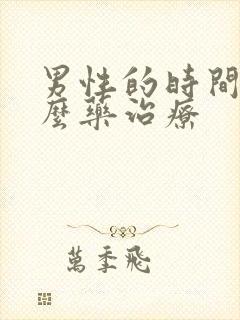 男性的時間
麼藥治療
萬季飛